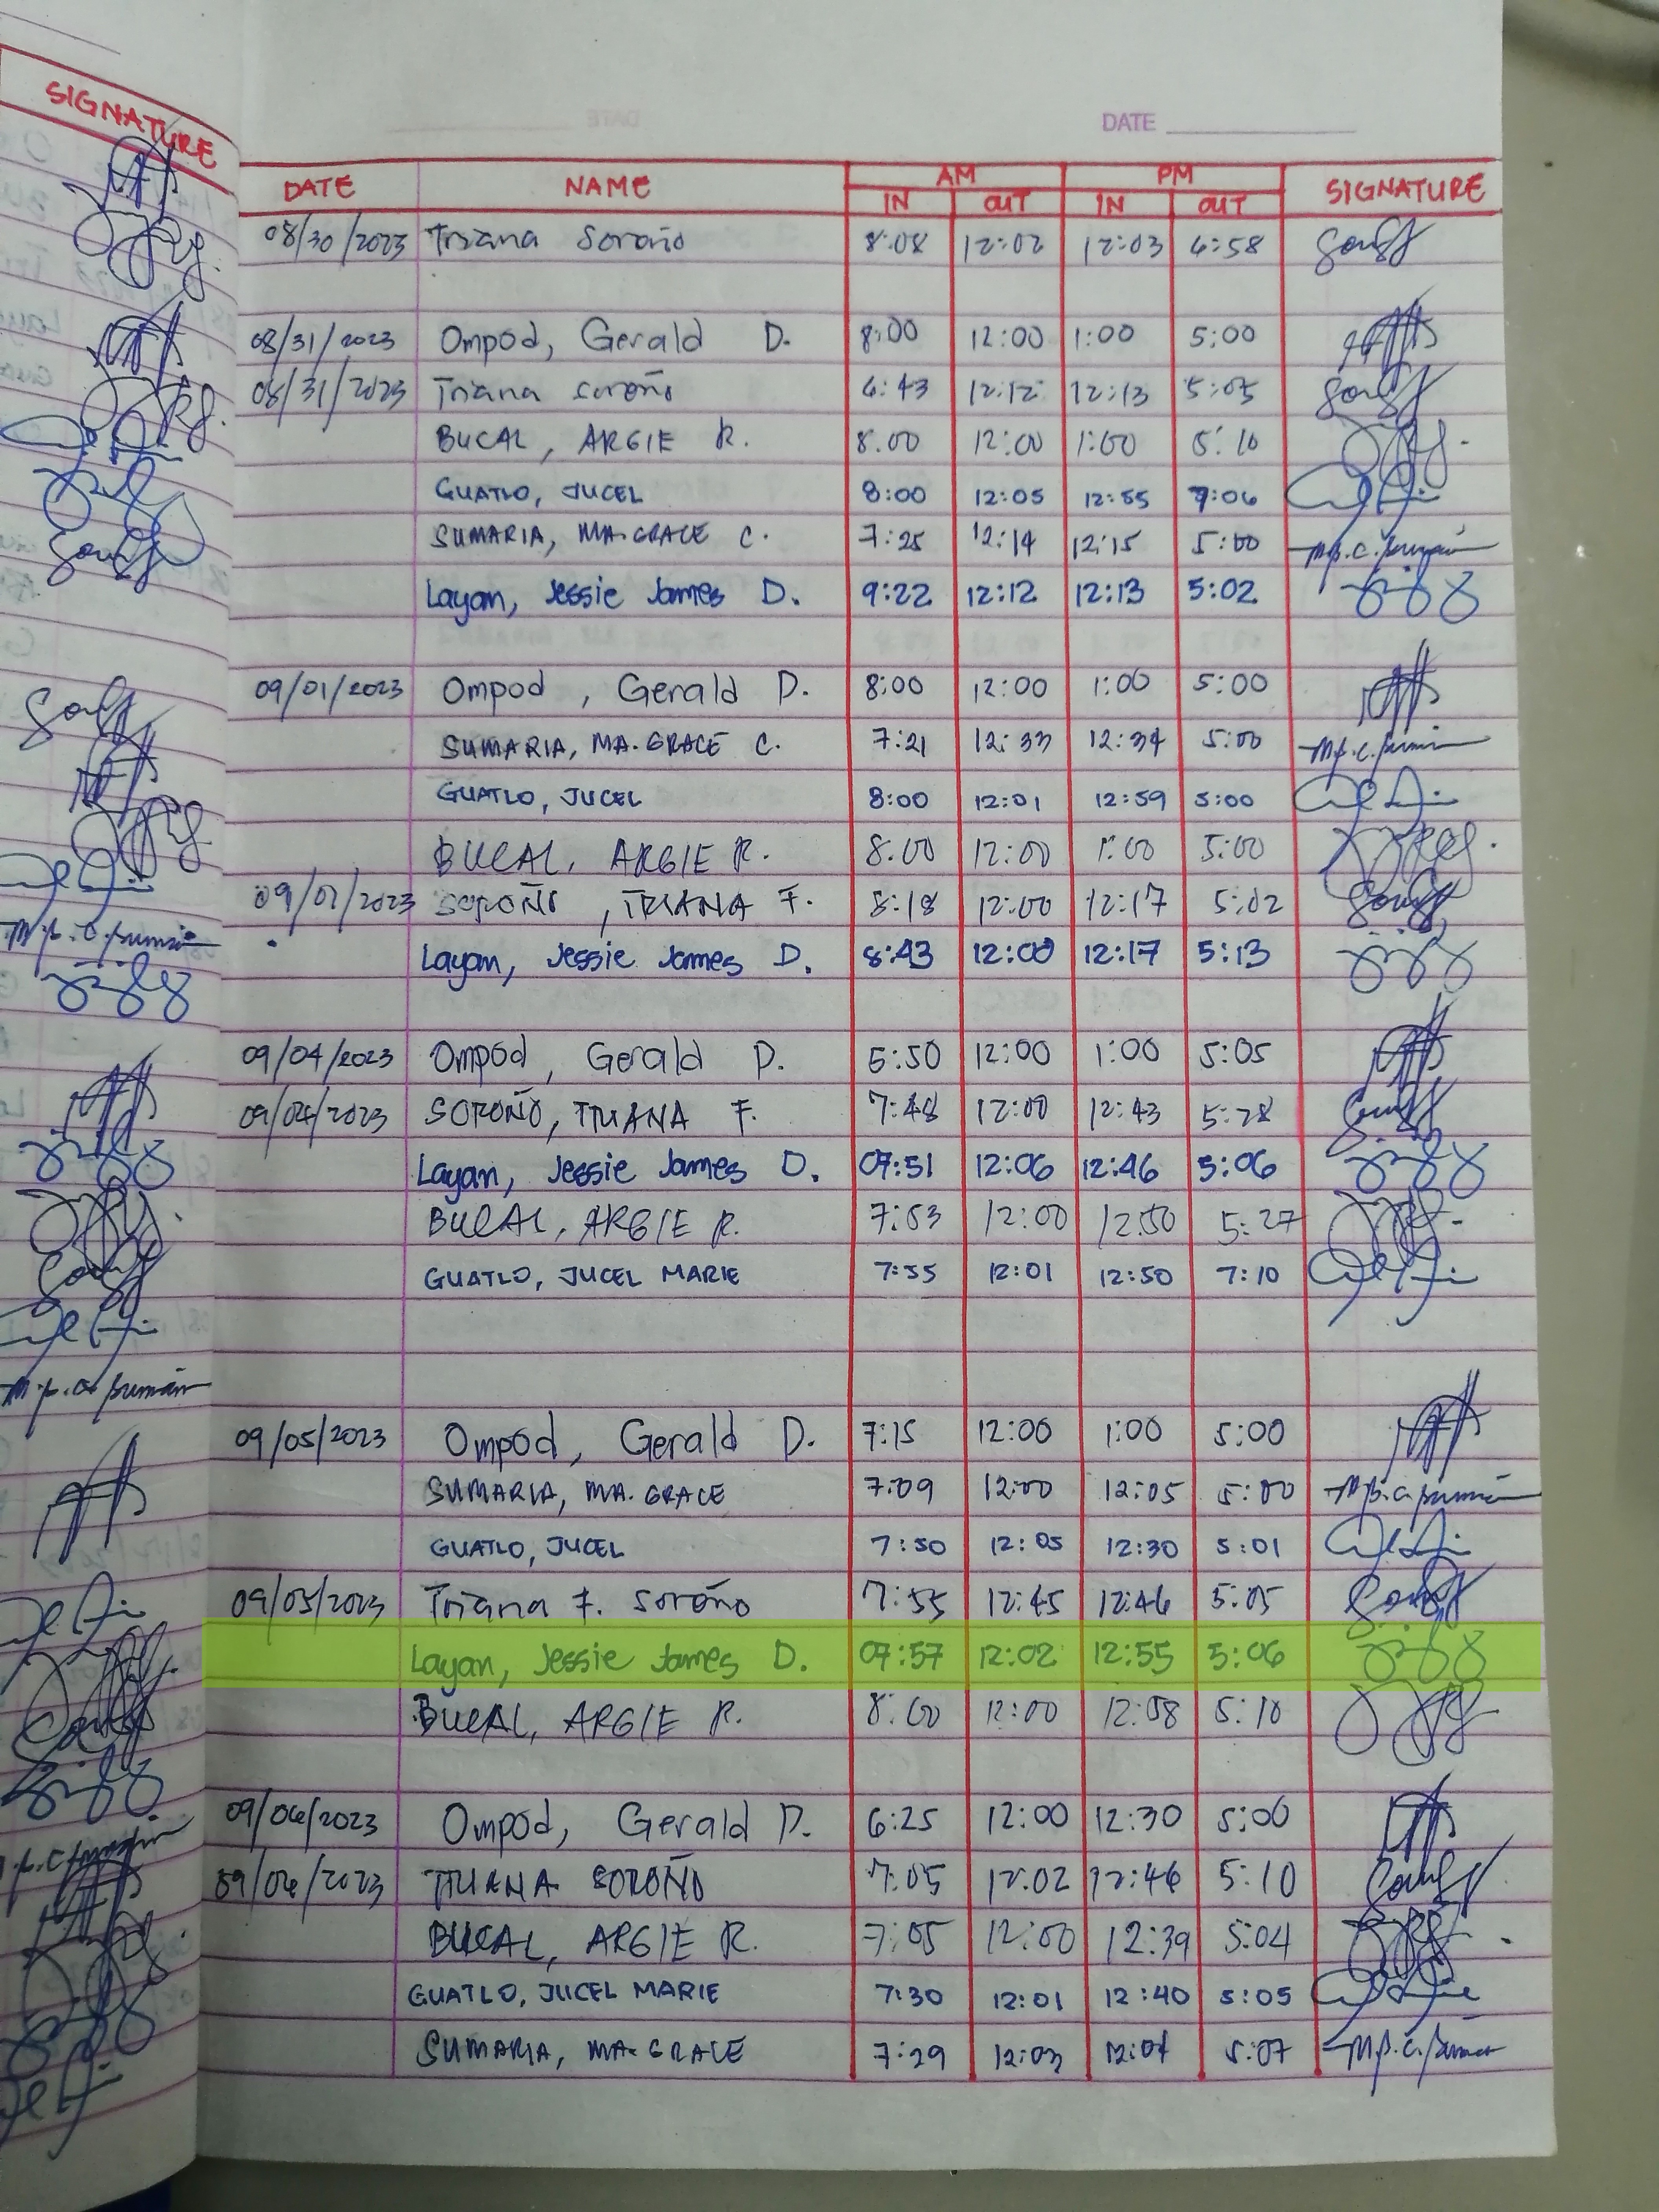 SIGNATURE
DATE
DATE NAME AM PM SIGNATURE
IN OUT IN OUT
08/30/2023 Triana Soroño 8:08 12:02 12:03 4:58
08/31/2023 Ompod, Gerald D. 8:00 12:00 1:00 5:00
08/31/2023 Triana Soroño 6:43 12:12 12:13 5:05
BUCAL, ARGIE R. 8:00 12:00 1:00 5:10
GUATLO, JUCEL 8:00 12:05 12:55 7:06
SUMARIA, MA. GRACE C. 7:25 12:14 12:15 5:00
Layan, Jessie James D. 9:22 12:12 12:13 5:02
09/01/2023 Ompod, Gerald D. 8:00 12:00 1:00 5:00
SUMARIA, MA. GRACE C. 7:21 12:33 12:34 5:00
GUATLO, JUCEL 8:00 12:01 12:59 5:00
BUCAL, ARGIE R. 8:00 12:00 1:00 5:00
SOROÑO, TRIANA F. 8:18 12:00 12:17 5:02
Layan, Jessie James D. 8:43 12:00 12:17 5:13
09/04/2023 Ompod, Gerald D. 12:00 1:00 5:05
09/04/2023 SOROÑO, TRIANA F. 7:48 12:00 12:43 5:28
Layan, Jessie James D. 07:51 12:06 12:46 5:06
BUCAL, ARGIE R. 7:53 12:00 12:50 5:27
GUATLO, JUCEL MARIE 7:55 12:01 12:50 7:10
09/05/2023 Ompod, Gerald D. 7:15 12:00 1:00 5:00
SUMARIA, MA. GRACE 7:09 12:00 12:05 5:00
GUATLO, JUCEL 7:50 12:05 12:30 5:01
09/05/2023 Triana F. Soroño 7:55 12:45 12:46 5:05
Layan, Jessie James D. 07:57 12:02 12:55 5:06
BUCAL, ARGIE R. 8:00 12:00 12:58 5:10
09/06/2023 Ompod, Gerald D. 6:25 12:00 12:30 5:00
09/06/2023 TRIANA SOROÑO 7:05 12:02 12:46 5:10
BUCAL, ARGIE R. 7:05 12:00 12:39 5:04
GUATLO, JUCEL MARIE 7:30 12:01 12:40 5:05
SUMARIA, MA. GRACE 7:29 12:03 12:04 5:07